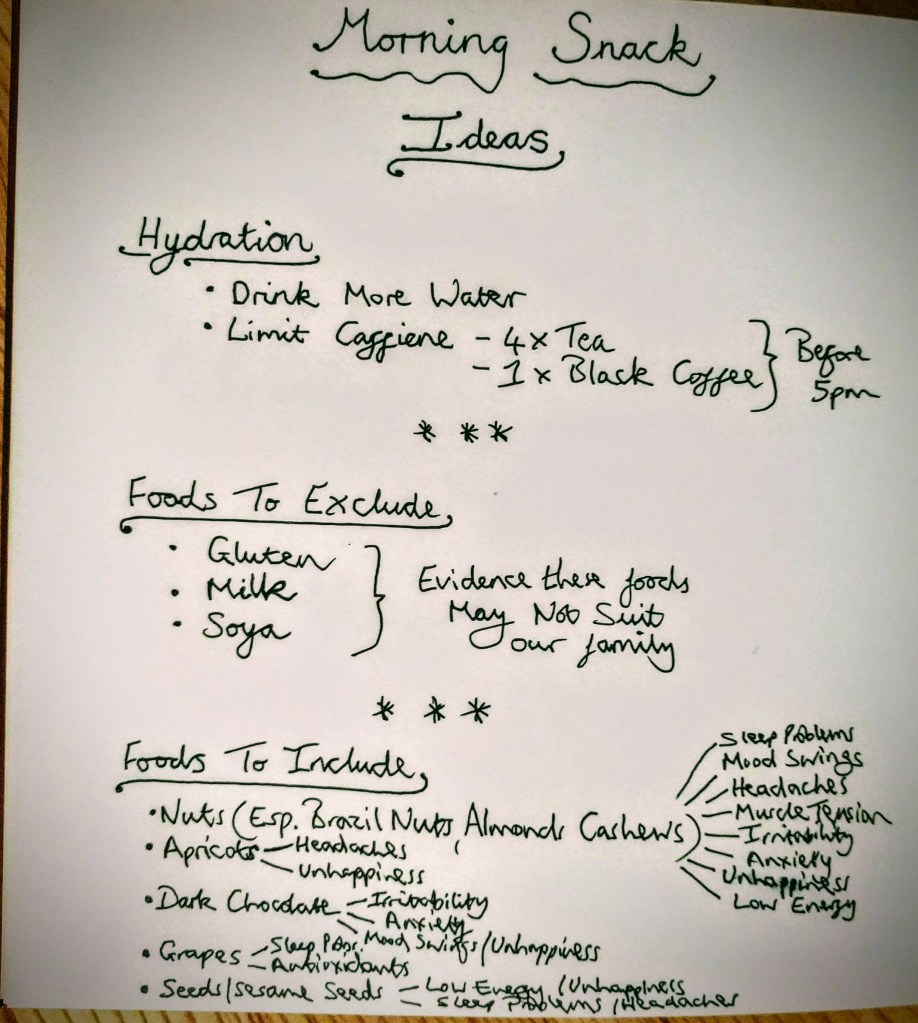 Morning Snack
Ideas
Hydration
• Drink More Water
• Limit Caffiene - 4x Tea
- 1 x Black Coffee } Before 5pm
* * *
Foods To Exclude
• Gluten
• Milk
• Soya
} Evidence these foods
May Not Suit
our family
* * *
Foods To Include
• Nuts (Esp. Brazil Nuts, Almonds Cashews)
Sleep Problems
Mood Swings
Headaches
Muscle Tension
Irritability
Anxiety
Unhappiness
Low Energy
• Apricots - Headaches
- Unhappiness
• Dark Chocolate - Irritability
- Anxiety
Mood Swings/Unhappiness
• Grapes - Sleep
- Antioxidants
• Seeds/Sesame Seeds - Low Energy /Unhappiness
- Sleep Problems /Headaches